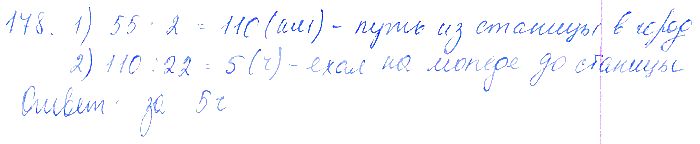 178. 1) 55 · 2 = 110 (км) - путь из станицы в город
2) 110 : 22 = 5 (ч) - ехал на мопеде до станицы
Ответ: за 5 ч